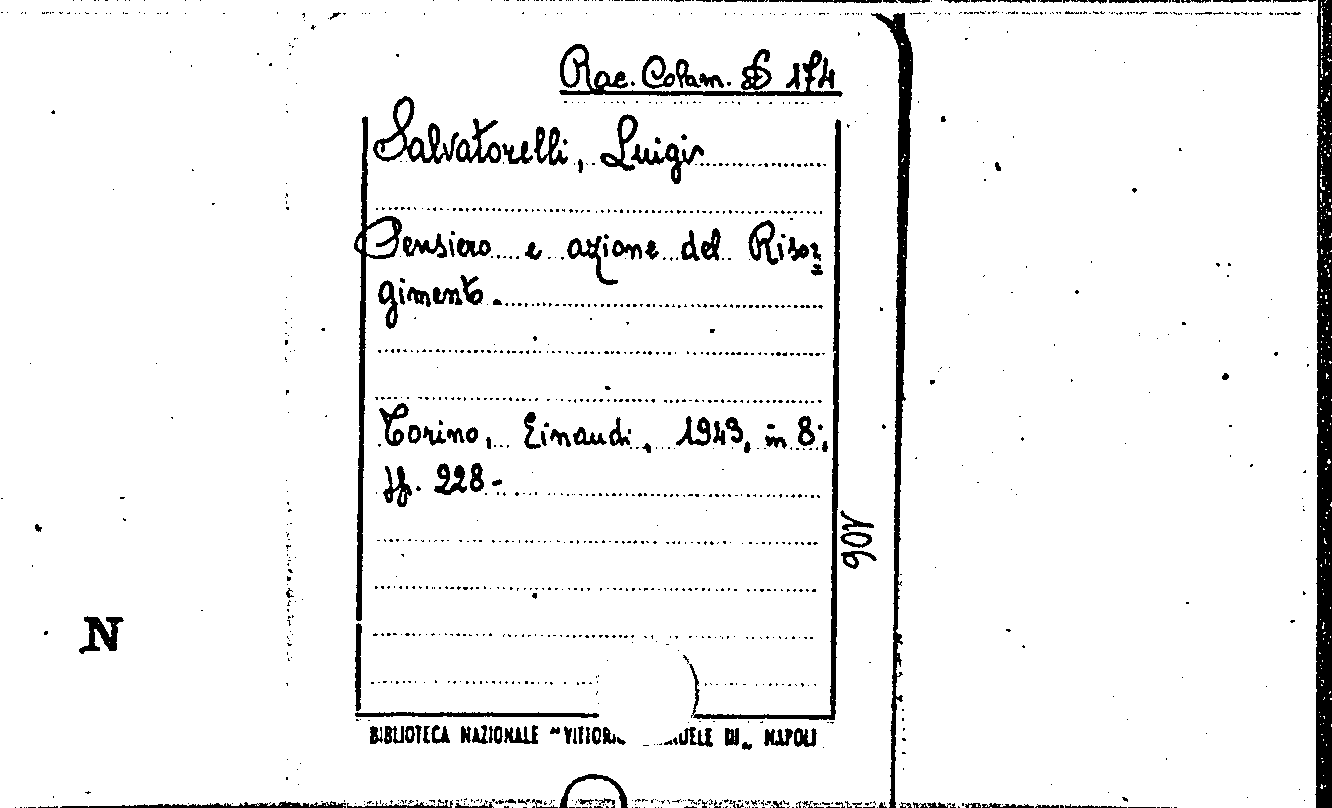 Rac. Colam. B 174
Salvatorelli, Luigi
Pensiero e azione del Risor=
gimento.
Torino, Einaudi, 1943, in 8°,
pp. 228-
90V
N
BIBLIOTECA NAZIONALE "VITTORIO
NAPOLI